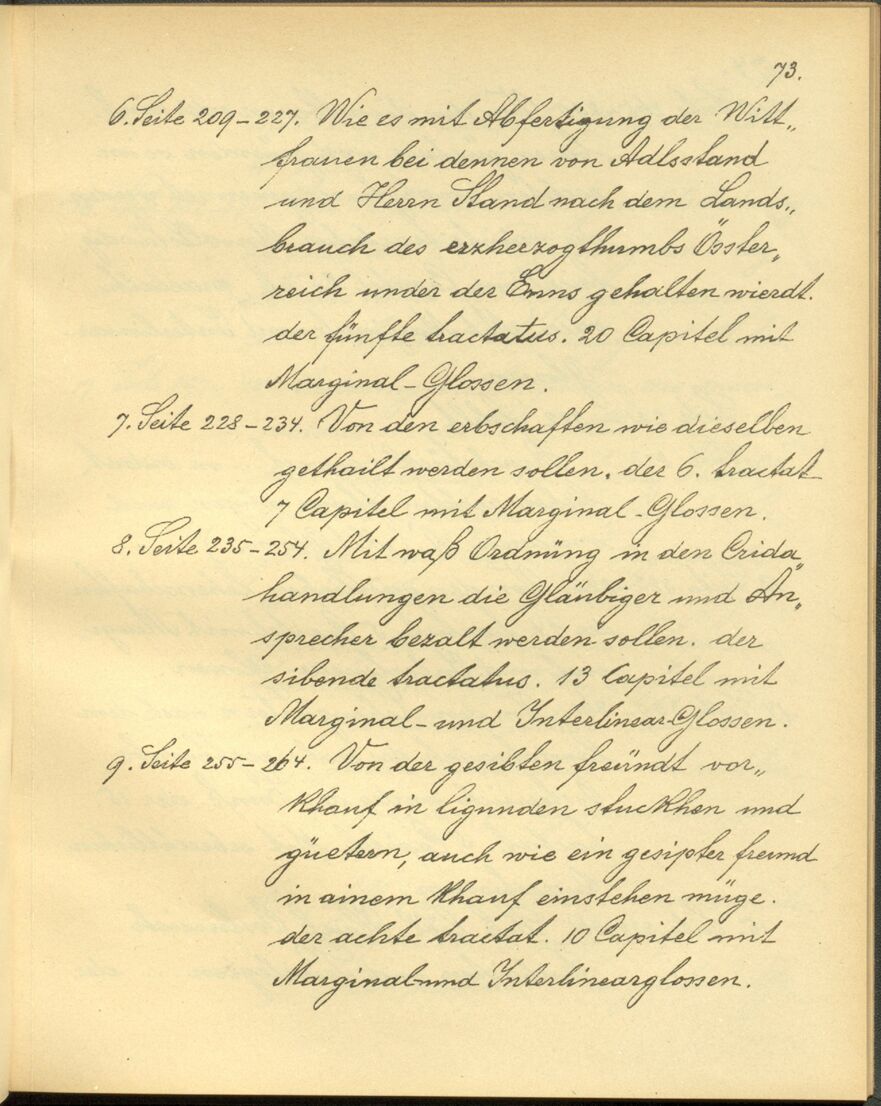 73.
6. Seite 209-227. Wie es mit Abfertigung der Witt„
frauen bei dennen von Adlsstand
und Herrn Stand nach dem Lands„
brauch des erzherzogthumbs Össter„
reich under der Enns gehalten wierdt.
der fünfte tractatus. 20 Capitel mit
Marginal-Glossen.
7. Seite 228-234. Von den erbschaften wie dieselben
gethailt werden sollen. der 6. tractat
7 Capitel mit Marginal-Glossen.
8. Seite 235-254. Mit waß Ordnüng in den Crida„
handlungen die Gläubiger und An„
sprecher bezalt werden sollen. der
sibende tractatus. 13 Capitel mit
Marginal- und Interlinear-Glossen.
9. Seite 255-264. Von der gesibten freündt vor„
Khauf in ligunden stuckhen und
güetern, auch wie ein gesipter freund
in ainem Khauf einstehen müge.
der achte tractat. 10 Capitel mit
Marginal- und Interlinearglossen.